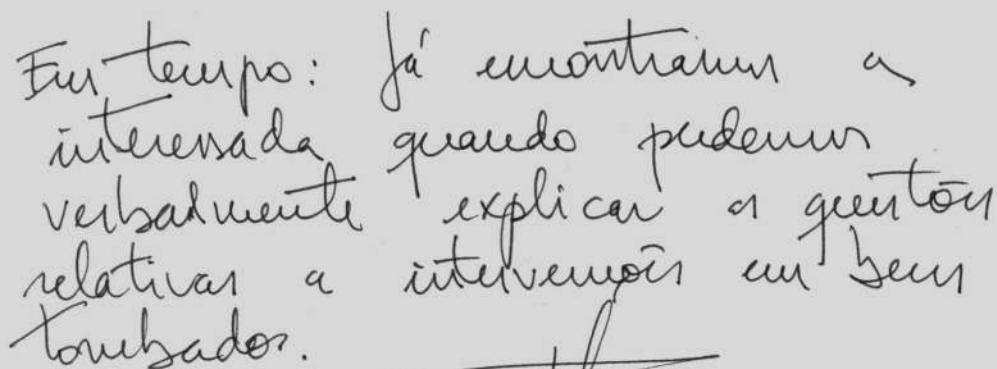 Em tempo: Já encontramos a
interessada quando pudemos
verbalmente explicar as questões
relativas a intervenções em bens
tombados.